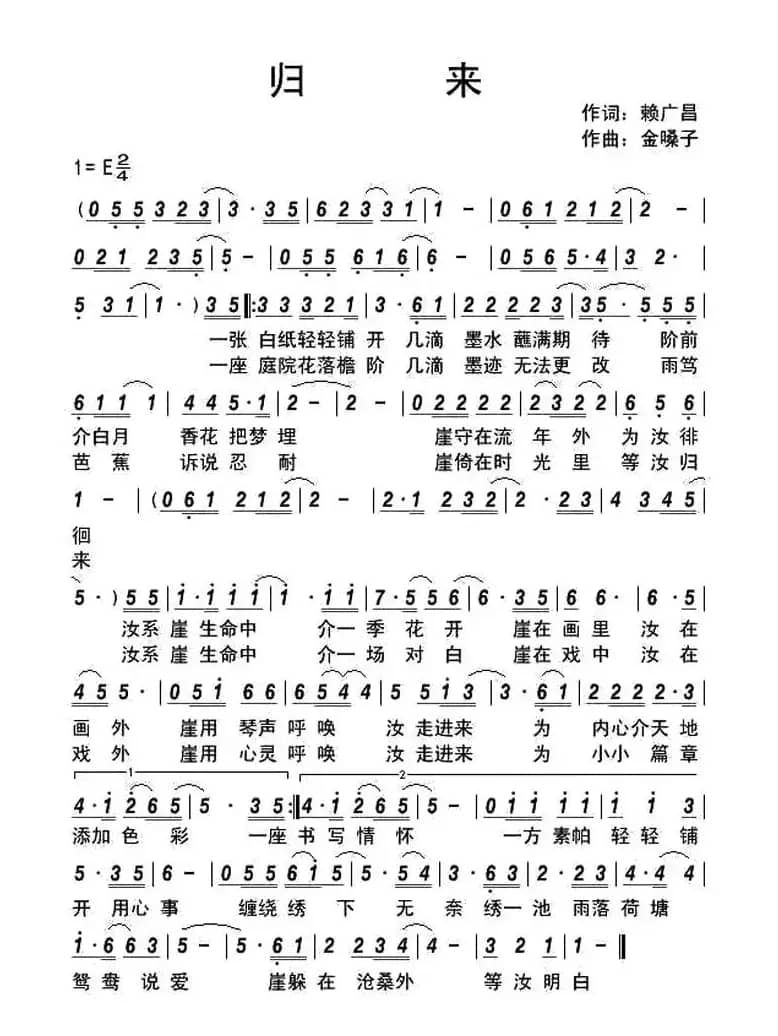 归 来
作词：赖广昌
作曲：金嗓子
1= E 2/4
(0 5 5 3 2 3 | 3 · 3 5 | 6 2 3 3 1 | 1 - | 0 6 1 2 1 2 | 2 - |
0 2 1 2 3 5 | 5 - | 0 5 5 6 1 6 | 6 - | 0 5 6 5 · 4 | 3 2 · |
5 3 1 | 1 · ) 3 5 |: 3 3 3 2 1 | 3 · 6 1 | 2 2 2 2 3 | 3 5 · 5 5 5 |
一张 白纸轻轻铺 开 几滴 墨水 蘸满期 待 阶前
一座 庭院花落檐 阶 几滴 墨迹 无法更 改 雨笃
6 1 1 1 | 4 4 5 · 1 | 2 - | 2 - | 0 2 2 2 2 | 2 3 2 2 | 6 5 6 |
介白月 香花 把梦 埋 崖守在流 年 外 为 汝 徘
芭 蕉 诉说 忍 耐 崖倚在时 光 里 等 汝 归
1 - | (0 6 1 2 1 2 | 2 - | 2 · 1 2 3 2 | 2 · 2 3 | 4 3 4 5 |
徊
来
5 · ) 5 5 | 1 · 1 1 1 | 1 · 1 1 | 7 · 5 5 6 | 6 · 3 5 | 6 6 · | 6 · 5 |
汝系 崖 生命中 介一 季 花 开 崖在 画 里 汝 在
汝系 崖 生命中 介一 场 对 白 崖在 戏 中 汝 在
4 5 5 · | 0 5 1 6 6 | 6 5 4 4 | 5 5 1 3 | 3 · 6 1 | 2 2 2 2 · 3 |
画 外 崖用 琴声 呼 唤 汝 走进来 为 内心介天 地
戏 外 崖用 心灵 呼 唤 汝 走进来 为 小小 篇 章
1 2
4 · 1 2 6 5 | 5 · 3 5 :| 4 · 1 2 6 5 | 5 - | 0 1 1 1 1 | 1 1 3 |
添加 色 彩 一座 书 写 情 怀 一方 素帕 轻 轻 铺
5 · 3 5 | 6 - | 0 5 5 6 1 5 | 5 · 5 4 | 3 · 6 3 | 2 · 2 3 | 4 · 4 4 |
开 用心 事 缠绕 绣 下 无 奈 绣一 池 雨落 荷 塘
1 · 6 6 3 | 5 - | 5 · 6 1 | 2 2 3 4 4 | 4 - | 3 2 1 | 1 - ‖
鸳 鸯 说 爱 崖躲 在 沧桑外 等 汝 明 白